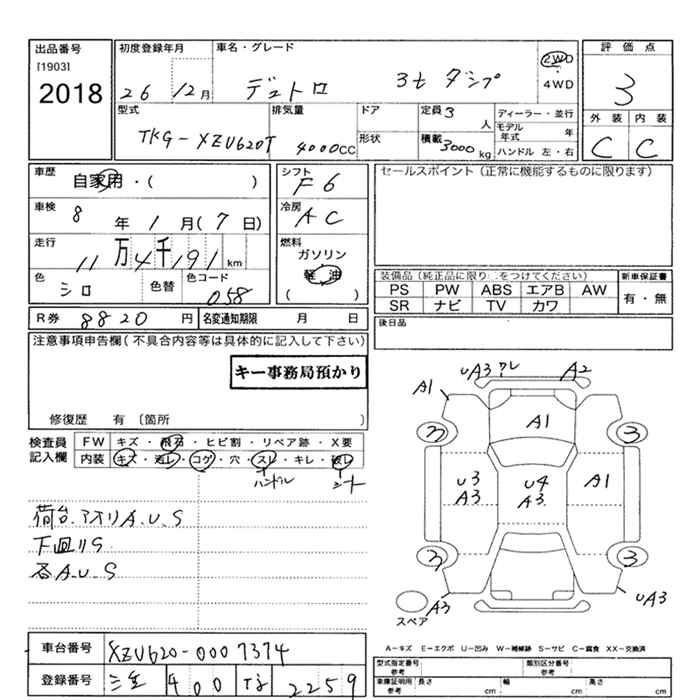 出品番号 初度登録年月 車名・グレード 評価点
[1903]
2018 26 12月 デュトロ 3t ダンプ 2WD 4WD 3
型式 排気量 ドア 定員 3人 ディーラー・並行 外装 内装
TKG-XZU620T 4000CC 形状 積載 3000kg モデル年式 年 C C
ハンドル 左・右
車歴 自家用・( ) シフト F6 セールスポイント(正常に機能するものに限ります)
車検 8年1月(7日) 冷房 AC
走行 11万4千191km 燃料 ガソリン
軽油
( )
色 シロ 色替 色コード 058
装備品(純正品に限り○をつけてください) 新車保証書
PS PW ABS エアB AW 有・無
SR ナビ TV カワ
R券 8820円 名変通知期限 月 日 後日品
注意事項申告欄(不具合内容等は具体的に記入して下さい)
キー事務局預かり
修復歴 有 〔箇所 〕
検査員記入欄 FW キズ・飛石・ヒビ割・リペア跡・X要
内装 キズ・汚レ・コゲ・穴・スレ・キレ・破レ
ハンドル シート
荷台.アオリA.U.S
下廻りS
各A.U.S
UA3 ワレ A2
A1
A1
3 3
U3 A3
U4 A3
A1
3 3
A3 UA3
スペア
A-キズ E-エクボ U-凹み W-補修跡 S-サビ C-腐食 XX-交換済
車台番号 XZU620-0007374
登録番号 三重 400 2259
型式指定番号 参考 類別区分番号 参考
車庫証明用 参考 長さ cm 幅 cm 高さ cm